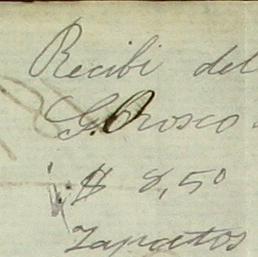 Recibi del
G. Orosco.
$ 8,50
Zapattos